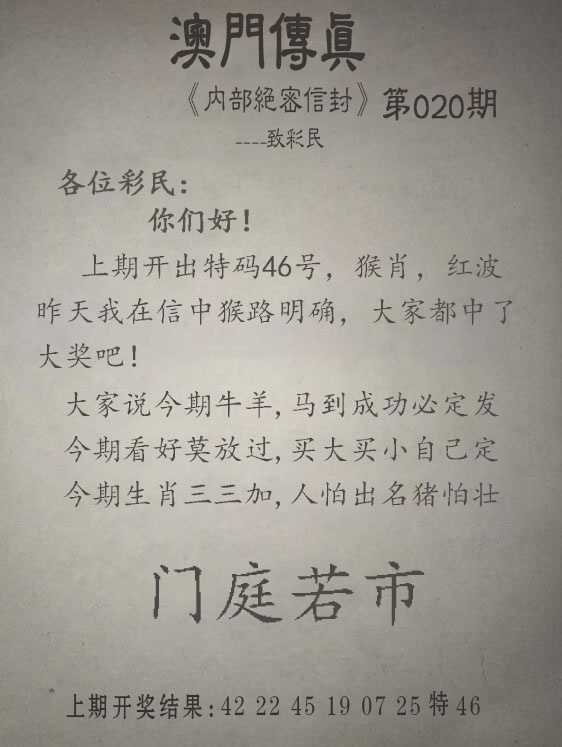 澳門傳眞
《内部絕密信封》第020期
----致彩民
各位彩民：
你们好！
上期开出特码46号，猴肖，红波
昨天我在信中猴路明确，大家都中了
大奖吧！
大家说今期牛羊,马到成功必定发
今期看好莫放过,买大买小自己定
今期生肖三三加,人怕出名猪怕壮
门庭若市
上期开奖结果:42 22 45 19 07 25 特 46